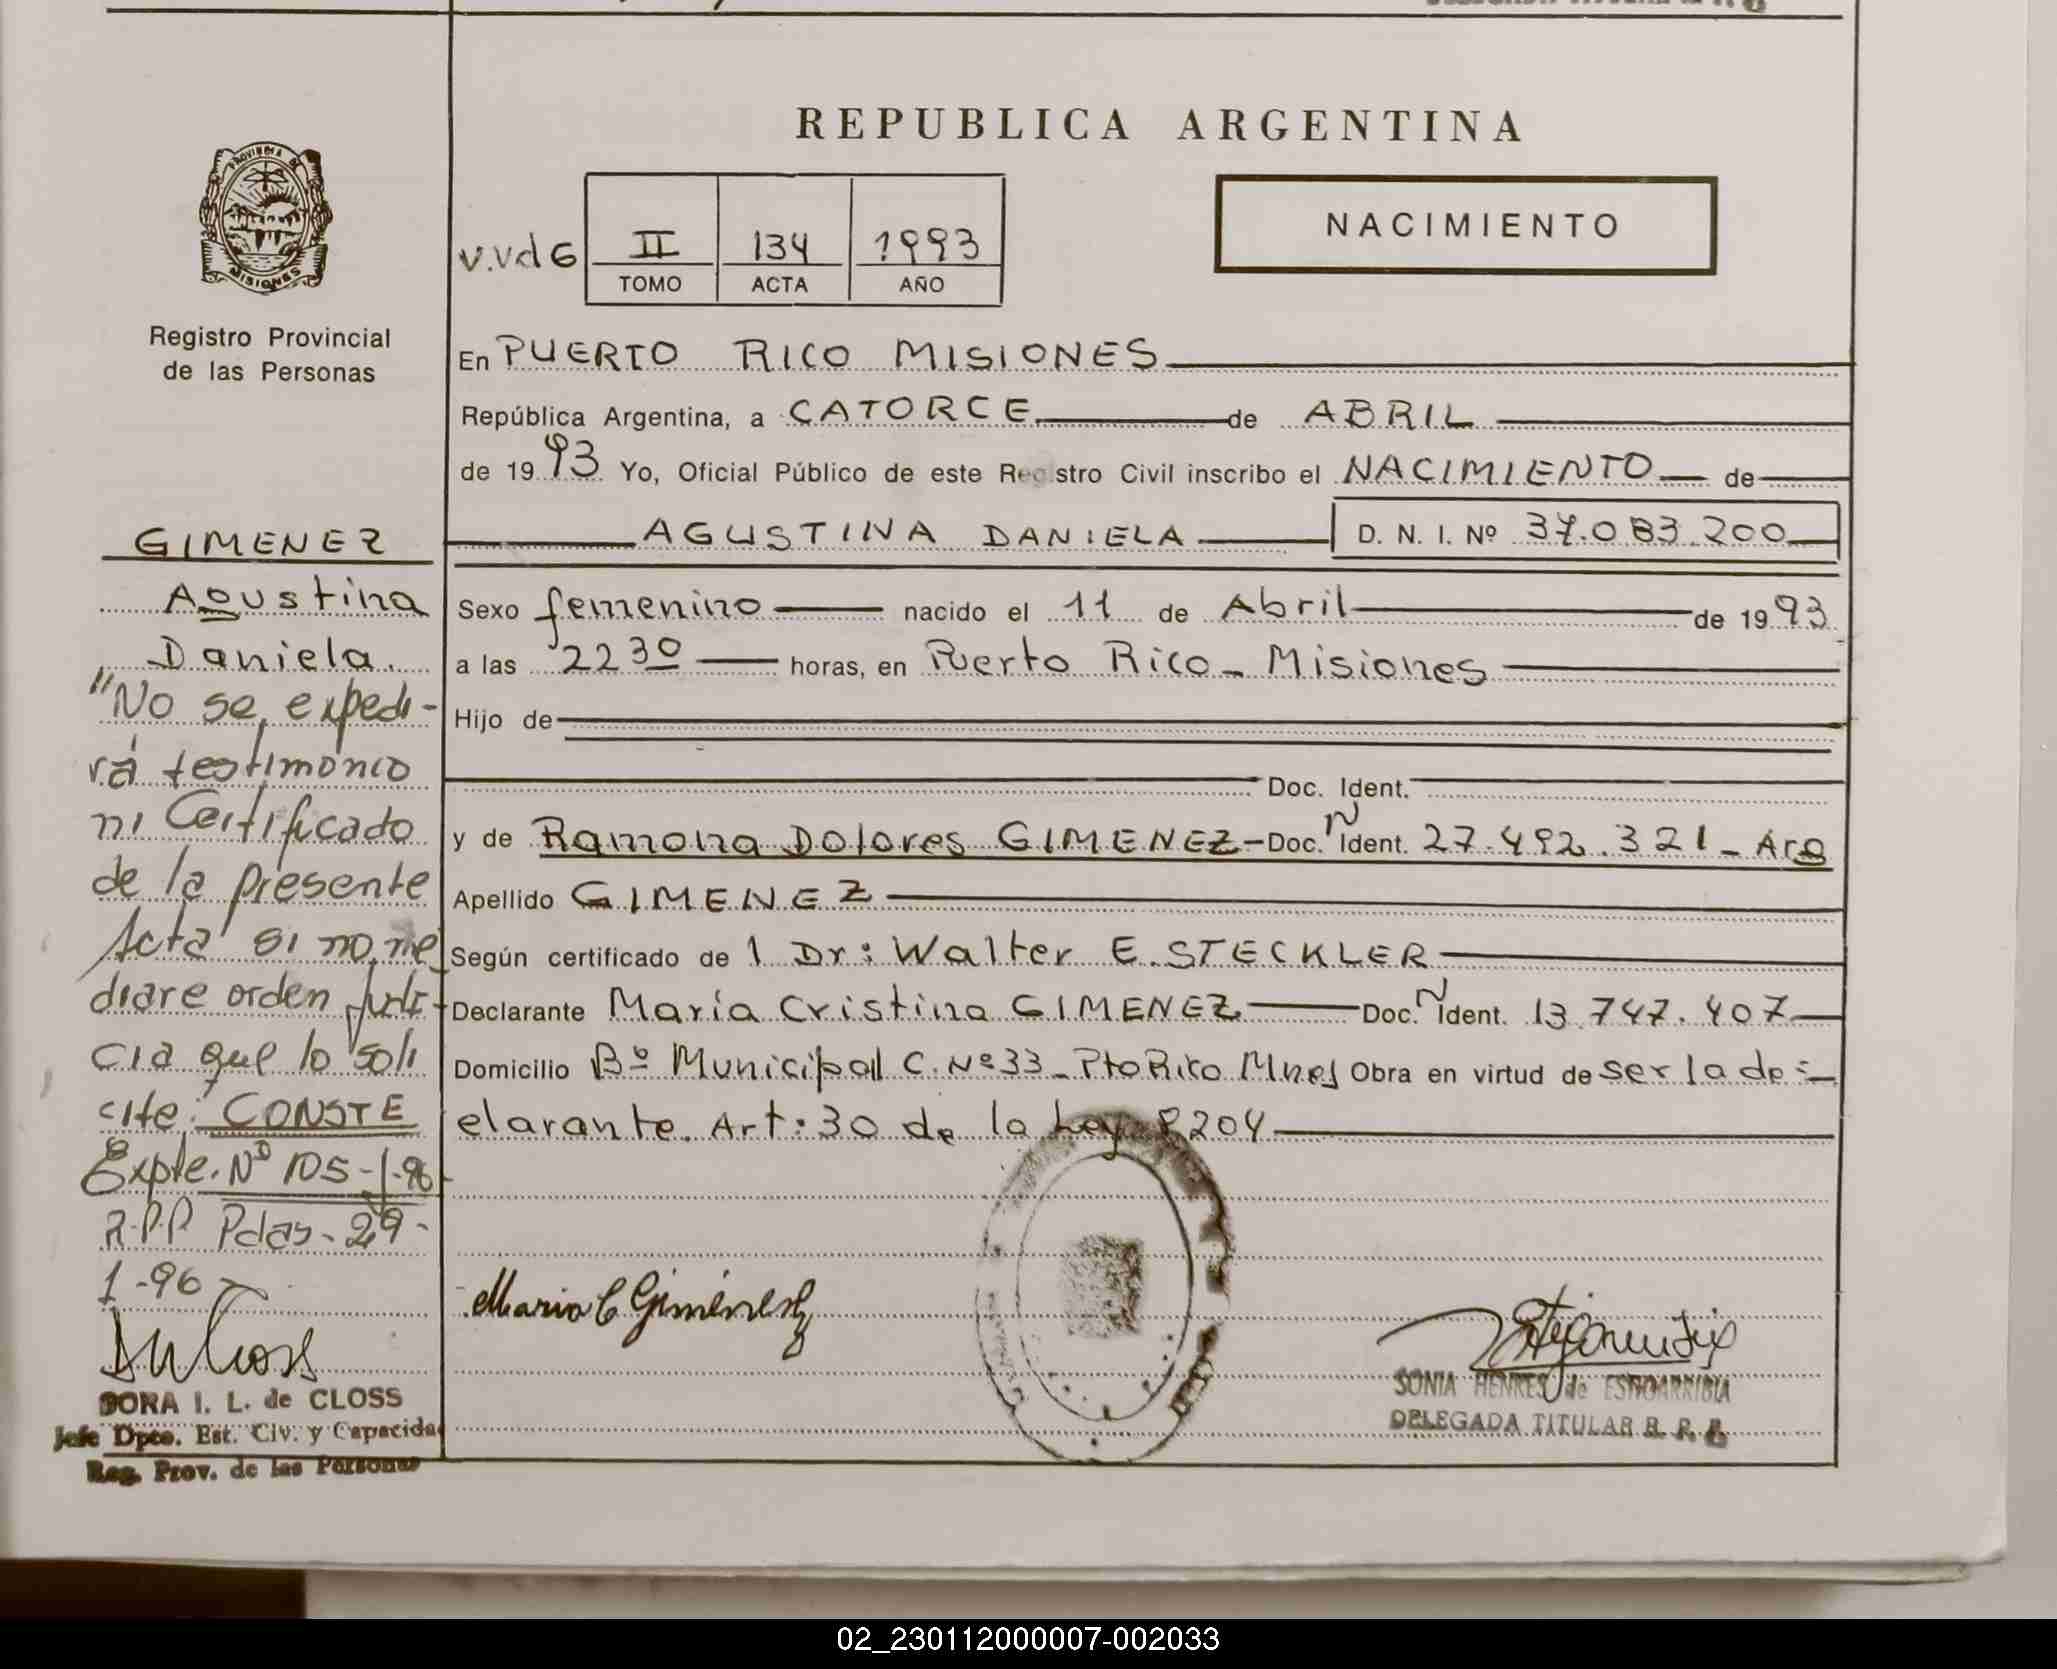 REPUBLICA ARGENTINA
PROVINCIA DE
MISIONES
Registro Provincial
de las Personas
V.Vd6 II 134 1993
TOMO ACTA AÑO
NACIMIENTO
En PUERTO RICO MISIONES
República Argentina, a CATORCE de ABRIL
de 1993 Yo, Oficial Público de este Registro Civil inscribo el NACIMIENTO de
AGUSTINA DANIELA D. N. I. Nº 37.083.200
Sexo femenino nacido el 11 de Abril de 1993
a las 22 30 horas, en Puerto Rico - Misiones
Hijo de
Doc. Ident.
y de Ramona Dolores GIMENEZ - Doc. N Ident. 27.492.321 - Arg
Apellido GIMENEZ
Según certificado de 1 Dr: Walter E. STECKLER
Declarante María Cristina GIMENEZ Doc. N Ident. 13.747.407
Domicilio Bº Municipal C. Nº 33 - Pto Rico Mnes Obra en virtud de ser la de=
clarante. Art: 30 de la Ley 8204
Maria C Gimenez
SONIA HENKES de
DELEGADA TITULAR R. P. P.
GIMENEZ
Agustina
Daniela.
"No se expedi-
rá testimonio
ni Certificado
de la presente
Acta si no me
diare orden Judi-
cia que lo soli
cite. CONSTE
Expte. Nº 105-J-96
R.P.P Pdas - 29-
1-96
DORA I. L. de CLOSS
Jefe Dpto. Est. Civ. y Capacida
Reg. Prov. de las Personas
02_230112000007-002033